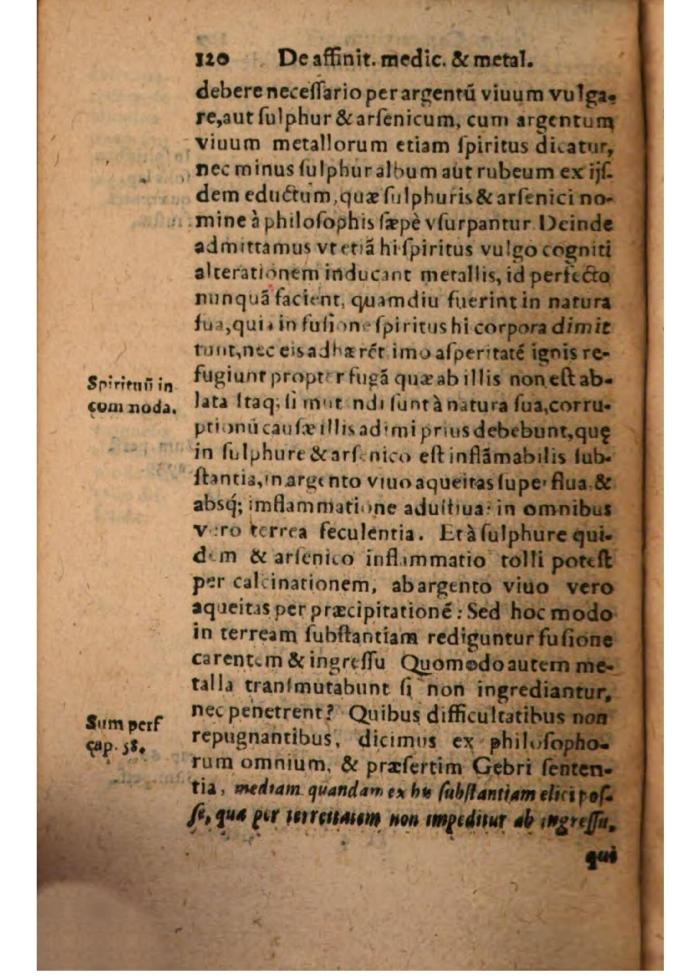 120 De affinit. medic. & metal.
debere necessario per argentũ viuum vulga-
re, aut sulphur & arsenicum, cum argentum
viuum metallorum etiam spiritus dicatur,
nec minus sulphur album aut rubeum ex ijs-
dem eductum, quæ sulphuris & arsenici no-
mine à philosophis sæpè vsurpantur. Deinde
admittamus vt etiã hi spiritus vulgo cogniti
alterationem inducant metallis, id perfecto
nunquã facient, quamdiu fuerint in natura
sua, quia in fusione spiritus hi corpora dimit
tunt, nec eis adhærẽt imo asperitatẽ ignis re-
fugiunt propter fugã quæ ab illis non est ab-
Spirituũ in
commoda.
lata Itaq; si mut ndi sunt à natura sua, corru-
ptionũ causæ illis adimi prius debebunt, quę
in sulphure & arsenico est inflãmabilis sub-
stantia, in argento viuo aqueitas superflua &
absq; inflammatione adustiua: in omnibus
vero terrea feculentia. Et à sulphure qui-
dem & arsenico inflammatio tolli potest
per calcinationem, ab argento viuo vero
aqueitas per præcipitationẽ: Sed hoc modo
in terream substantiam rediguntur fusione
carentem & ingressu Quomodo autem me-
talla transmutabunt si non ingrediantur,
nec penetrent? Quibus difficultatibus non
Sum perf
cap. 58.
repugnantibus, dicimus ex philosopho-
rum omnium, & præsertim Gebri senten-
tia, mediam quandam ex his substantiam elici pos-
se, qua per terreitatem non impeditur ab ingressu,
qui